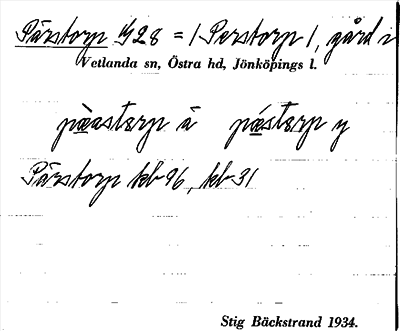 Pärstorp 1/2 8 = / Perstorp /, gård i
Vetlanda sn, Östra hd, Jönköpings l.
pæastorp ä pæstorp y
Pärstorp kb 96, kb 31
Stig Bäckstrand 1934.